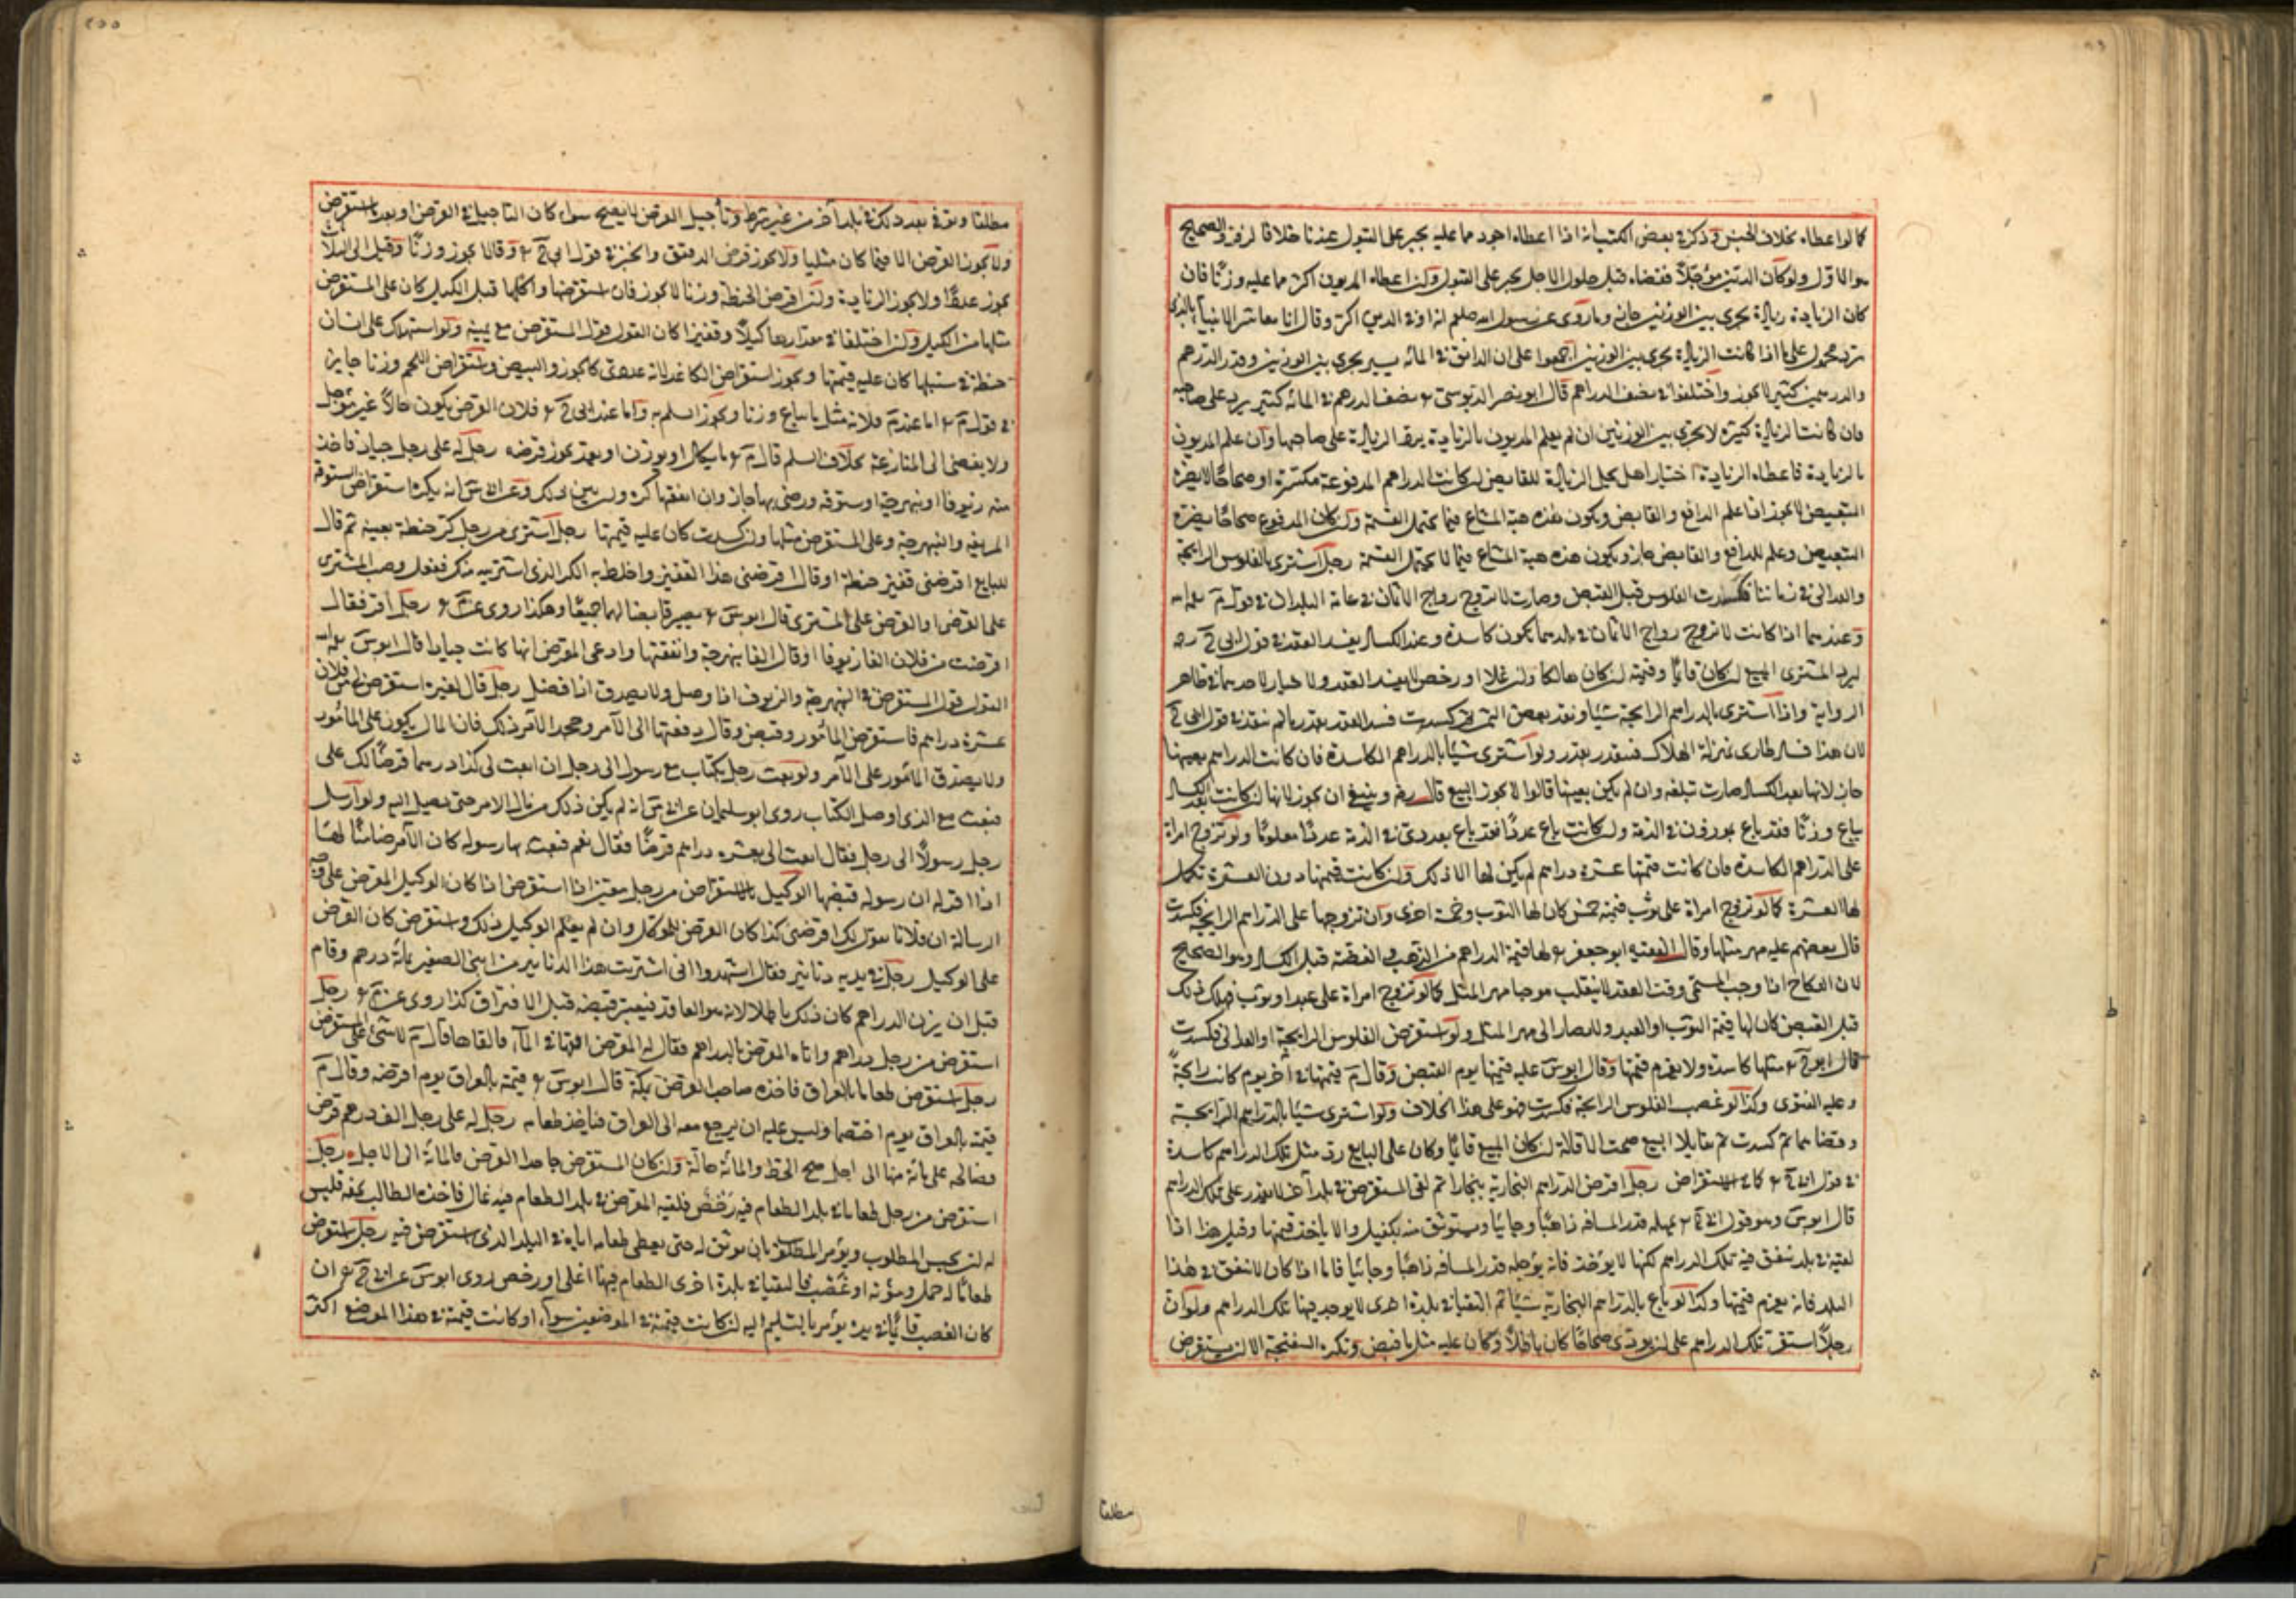 كما لو اعطاه بخلاف الجنس وذكر في بعض الكتب انه اذا اعطاه اجود مما عليه يجبر على القبول عندنا خلافا لزفر والصحيح
هو الاول ولو كان الدين مؤجلا فقضاه قبل حلول الاجل يجبر على القبول وان اعطاه المديون اكثر مما عليه وزنا فان
كان الزيادة زيادة يجرى بين الوزنين جاز وما روى عن رسول الله صلعم انه اوفى الدين اكثر وقال انا معاشر الانبياء
محمول على ما اذا كانت الزيادة يجرى بين الوزنين اجمعوا على ان الدانق في المائة يسير يجرى بين الوزنين وقدر الدرهم
والدرهمين كثير لا يجوز واختلفوا في نصف الدراهم قال ابو نصر الدبوسى نصف الدرهم في المائة كثير يرد على صاحبه
فان كانت الزيادة كثيرة لا يجرى بين الوزنين ان لم يعلم المديون بالزيادة يرد الزيادة على صاحبها وان علم المديون
بالزيادة فاعطاه الزيادة اختيارا هل يحل الزيادة للقابض ان كانت الدراهم المدفوعة مكسرة او صحاحا لا يضره
التبعيض لا يجوز اذا علم الدافع والقابض ويكون هذه هبة المشاع فيما يحتمل القسمة وان كان المدفوع صحاحا يضره
التبعيض وعلم الدافع والقابض جاز ويكون هذه هبة المشاع فيما لا يحتمل القسمة رجل اشترى بالفلوس الرايجة
والعدالى في زماننا فكسدت الفلوس قبل القبض وصارت لا تروج رواج الاثمان في عامة البلدان في قول م
وعندهما اذا كانت لا تروج رواج الاثمان في بلدهما يكون كاسدة وعند الكساد يفسد العقد في قول ابى ح
يرد المشترى المبيع ان كان قايما وقيمته ان كان هالكا وان غلا او رخص لا يفسد العقد ولا خيار لاحدهما في ظاهر
الرواية واذا اشترى بالدراهم الرايجة شيئا ونقد بعض الثمن ثم كسدت فسد العقد بقدر ما لم ينقد في قول ابى ح
لان هذا فساد طارى بمنزلة الهلاك فيتقدر بقدره ولو اشترى شيئا بالدراهم الكاسدة فان كانت الدراهم بعينها
جاز لانها بعد الكساد صارت سلعة وان لم يكن بعينها قالوا لا يجوز البيع قال رض وينبغى ان يجوز لانها ان كانت بعد الكساد
يباع وزنا فقد باع بموزون في الذمة وان كانت يباع عددا فقد باع بعددى في الذمة عددا معلوما ولو تزوج امراة
على الدراهم الكاسدة فان كانت قيمتها عشرة دراهم لم يكن لها الا ذلك وان كانت قيمتها دون العشرة تكمل
لها العشرة كما لو تزوج امراة على ثوب قيمته خمس كان لها الثوب وخمسة اخرى وان تزوجها على الدراهم الرايجة فكسدت
قال بعضهم عليه مهر مثلها وقال الفقيه ابو جعفر لها قيمة الدراهم من الذهب والفضة قبل الكساد وهو الصحيح
لان النكاح اذا وجب المسمى وقت العقد لا ينقلب موجبا مهر المثل كما لو تزوج امراة على عبد او ثوب فهلك ذلك
قبل القبض كان لها قيمة الثوب او العبد ولا يصار الى مهر المثل ولو استقرض الفلوس الرايجة او العدالى فكسدت
قال ابو ح مثلها كاسدة ولا يغرم قيمتها وقال ابو س عليه قيمتها يوم القبض وقال م قيمتها في آخر يوم كانت رايجة
وعليه الفتوى وكذا لو غصب الفلوس الرايجة فكسدت فهو على هذا الخلاف ولو اشترى شيئا بالدراهم الرايجة
وتقابضا ثم كسدت ثم تقايلا البيع صحت الاقالة ان كان المبيع قايما وكان على البايع رد مثل تلك الدراهم كاسدة
في قول ابى ح كما في الاستقراض رجل اقرض الدراهم البخارية ببخارا ثم لقى المستقرض في بلد آخر لا يقدر على تلك الدراهم
قال ابو س وهو قول ابى ح يمهله قدر المسافة ذاهبا وجائيا ويستوثق منه بكفيل والا ياخذ قيمتها وقيل هذا اذا
لقيه في بلد ينفق فيه تلك الدراهم لكنها لا يوخذ فانه يوجله قدر المسافة ذاهبا وجائيا فاما اذا كان لا ينفق في هذا
البلد فانه يغرم قيمتها وكذا لو باع بالدراهم البخارية شيئا ثم التقيا في بلدة اخرى لا يوجد فيها تلك الدراهم ولو ان
رجلا استقرض تلك الدراهم على ان يودى صحاحا كان باطلا وكان عليه مثل ما قبض وتكره السفتجة الا ان يستقرض
مطلقا
مطلقا ويوفى بعد ذلك في بلد آخر من غير شرط وتأجيل القرض لا يصح سواء كان التاجيل في القرض او بعد استقرض
ولا يجوز القرض الا فيما كان مثليا ولا يجوز قرض الدقيق والخبز في قول ابى ح وقالا يجوز وزنا وقيل
يجوز عددا ولا يجوز الزيادة وان اقرض الحنطة وزنا لا يجوز فان استقرضها واكلها قبل الكيل كان على المستقرض
مثلها من الكيل وان اختلفا في مقدارها كيلا وقفيزا كان القول قول المستقرض مع يمينه ولو استهلك على انسان
حنطة في سنبلها كان عليه قيمتها ويجوز استقراض الكاغد لانه عددى كالجوز والبيض واستقراض اللحم وزنا جايز
في قول م اما عند م فلانه مثلى يباع وزنا ويجوز السلم به واما عند ابى ح فلان القرض يكون حالا غير مؤجل
ولا يفضى الى المنازعة بخلاف السلم قال م ما يكال او يوزن او يعد يجوز قرضه رجل له على رجل جياد فاخذ
منه زيوفا او نبهرجة او ستوقة ورضى بها جاز وان انفقها كره وان بين ذلك وعن ابى س انه يكره استقراض الستوقة
المزيفة والنبهرجة وعلى المستقرض مثلها وان كسدت كان عليه قيمتها رجل اشترى من رجل كر حنطة بعينه ثم قال
للبايع اقرضنى قفيز حنطة او قال اقرضنى هذا القفيز واخلطه بالكر الذى اشتريته منك ففعل وصب المشترى
على القرض او القرض على المشترى قال ابو س يصير قابضا لهما جميعا وهكذا روى عن م رجل اقر فقال
اقرضت من فلان الفا زيوفا او قال الفا نبهرجة وانفقتها وادعى المقرض انها كانت جيادا قال ابو س
القول قول المستقرض في النبهرجة والزيوف اذا وصل ولا يصدق اذا فصل رجل قال لغيره استقرض لى من فلان
عشرة دراهم فاستقرض المأمور وقبض وقال دفعتها الى الآمر وجحد الآمر ذلك فان المال يكون على المأمور
ولا يصدق المأمور على الآمر ولو بعث رجل بكتاب مع رسول الى رجل ان ابعث لى كذا درهما قرضا لك على
فبعث مع الذى اوصل الكتاب روى ابو سليمان عن ابى س انه لم يكن ذلك من مال الآمر حتى يصل اليه ولو ارسل
رجل رسولا الى رجل فقال ابعث الى بعشرة دراهم قرضا فقال نعم فبعث بها رسوله كان الآمر ضامنا لها
اذا اقر له ان رسوله قبضها الوكيل بالاستقراض من رجل معتبر اذا استقرض اذا كان الوكيل المقرض على وجه
الرسالة ان فلانا يقول لك اقرضنى كذا كان القرض للموكل وان لم يعلم الوكيل بذلك واستقرض كان القرض
على الوكيل رجل في يديه دنانير فقال اشهدوا انى اشتريت هذا الدنانير من ابنى الصغير بمائة درهم وقام
قبل ان يزن الدراهم كان ذلك باطلا لانه هو العاقد فيعتبر قبضه قبل الافتراق كذا روى عن م رجل
استقرض من رجل دراهم واتاه المقرض بالدراهم فقال له المقرض القها في الماء فالقاها قال م لا شئ على المستقرض
رجل استقرض طعاما بالعراق فاخذه صاحب القرض بمكة قال ابو س قيمته بالعراق يوم اقرضه وقال م
قيمته بالعراق يوم اختصما وليس عليه ان يرجع معه الى العراق فياخذ طعامه رجل له على رجل الف درهم قرض
فصالحه على مائة منها الى اجل صح الحط والمائة حالة وان كان المستقرض جاحدا القرض فالمائة الى الاجل رجل
استقرض من رجل طعاما في بلد الطعام فيه رخص فلقيه المقرض في بلد الطعام فيه غال فاخذه الطالب بحقه فليس
له ان يحبس المطلوب ويؤمر المطلوب بان يوثق له حتى يعطى طعامه اياه في البلد الذى استقرض فيه رجل استقرض
طعاما له حمل ومؤنة او غصب فالتقيا في بلدة اخرى الطعام فيها اغلى او رخص روى ابو س عن ابى ح ان
كان الغصب قائما في يده يؤمر بالتسليم اليه ان كانت قيمته في الموضعين سواء او كانت قيمته في هذا الموضع اكثر